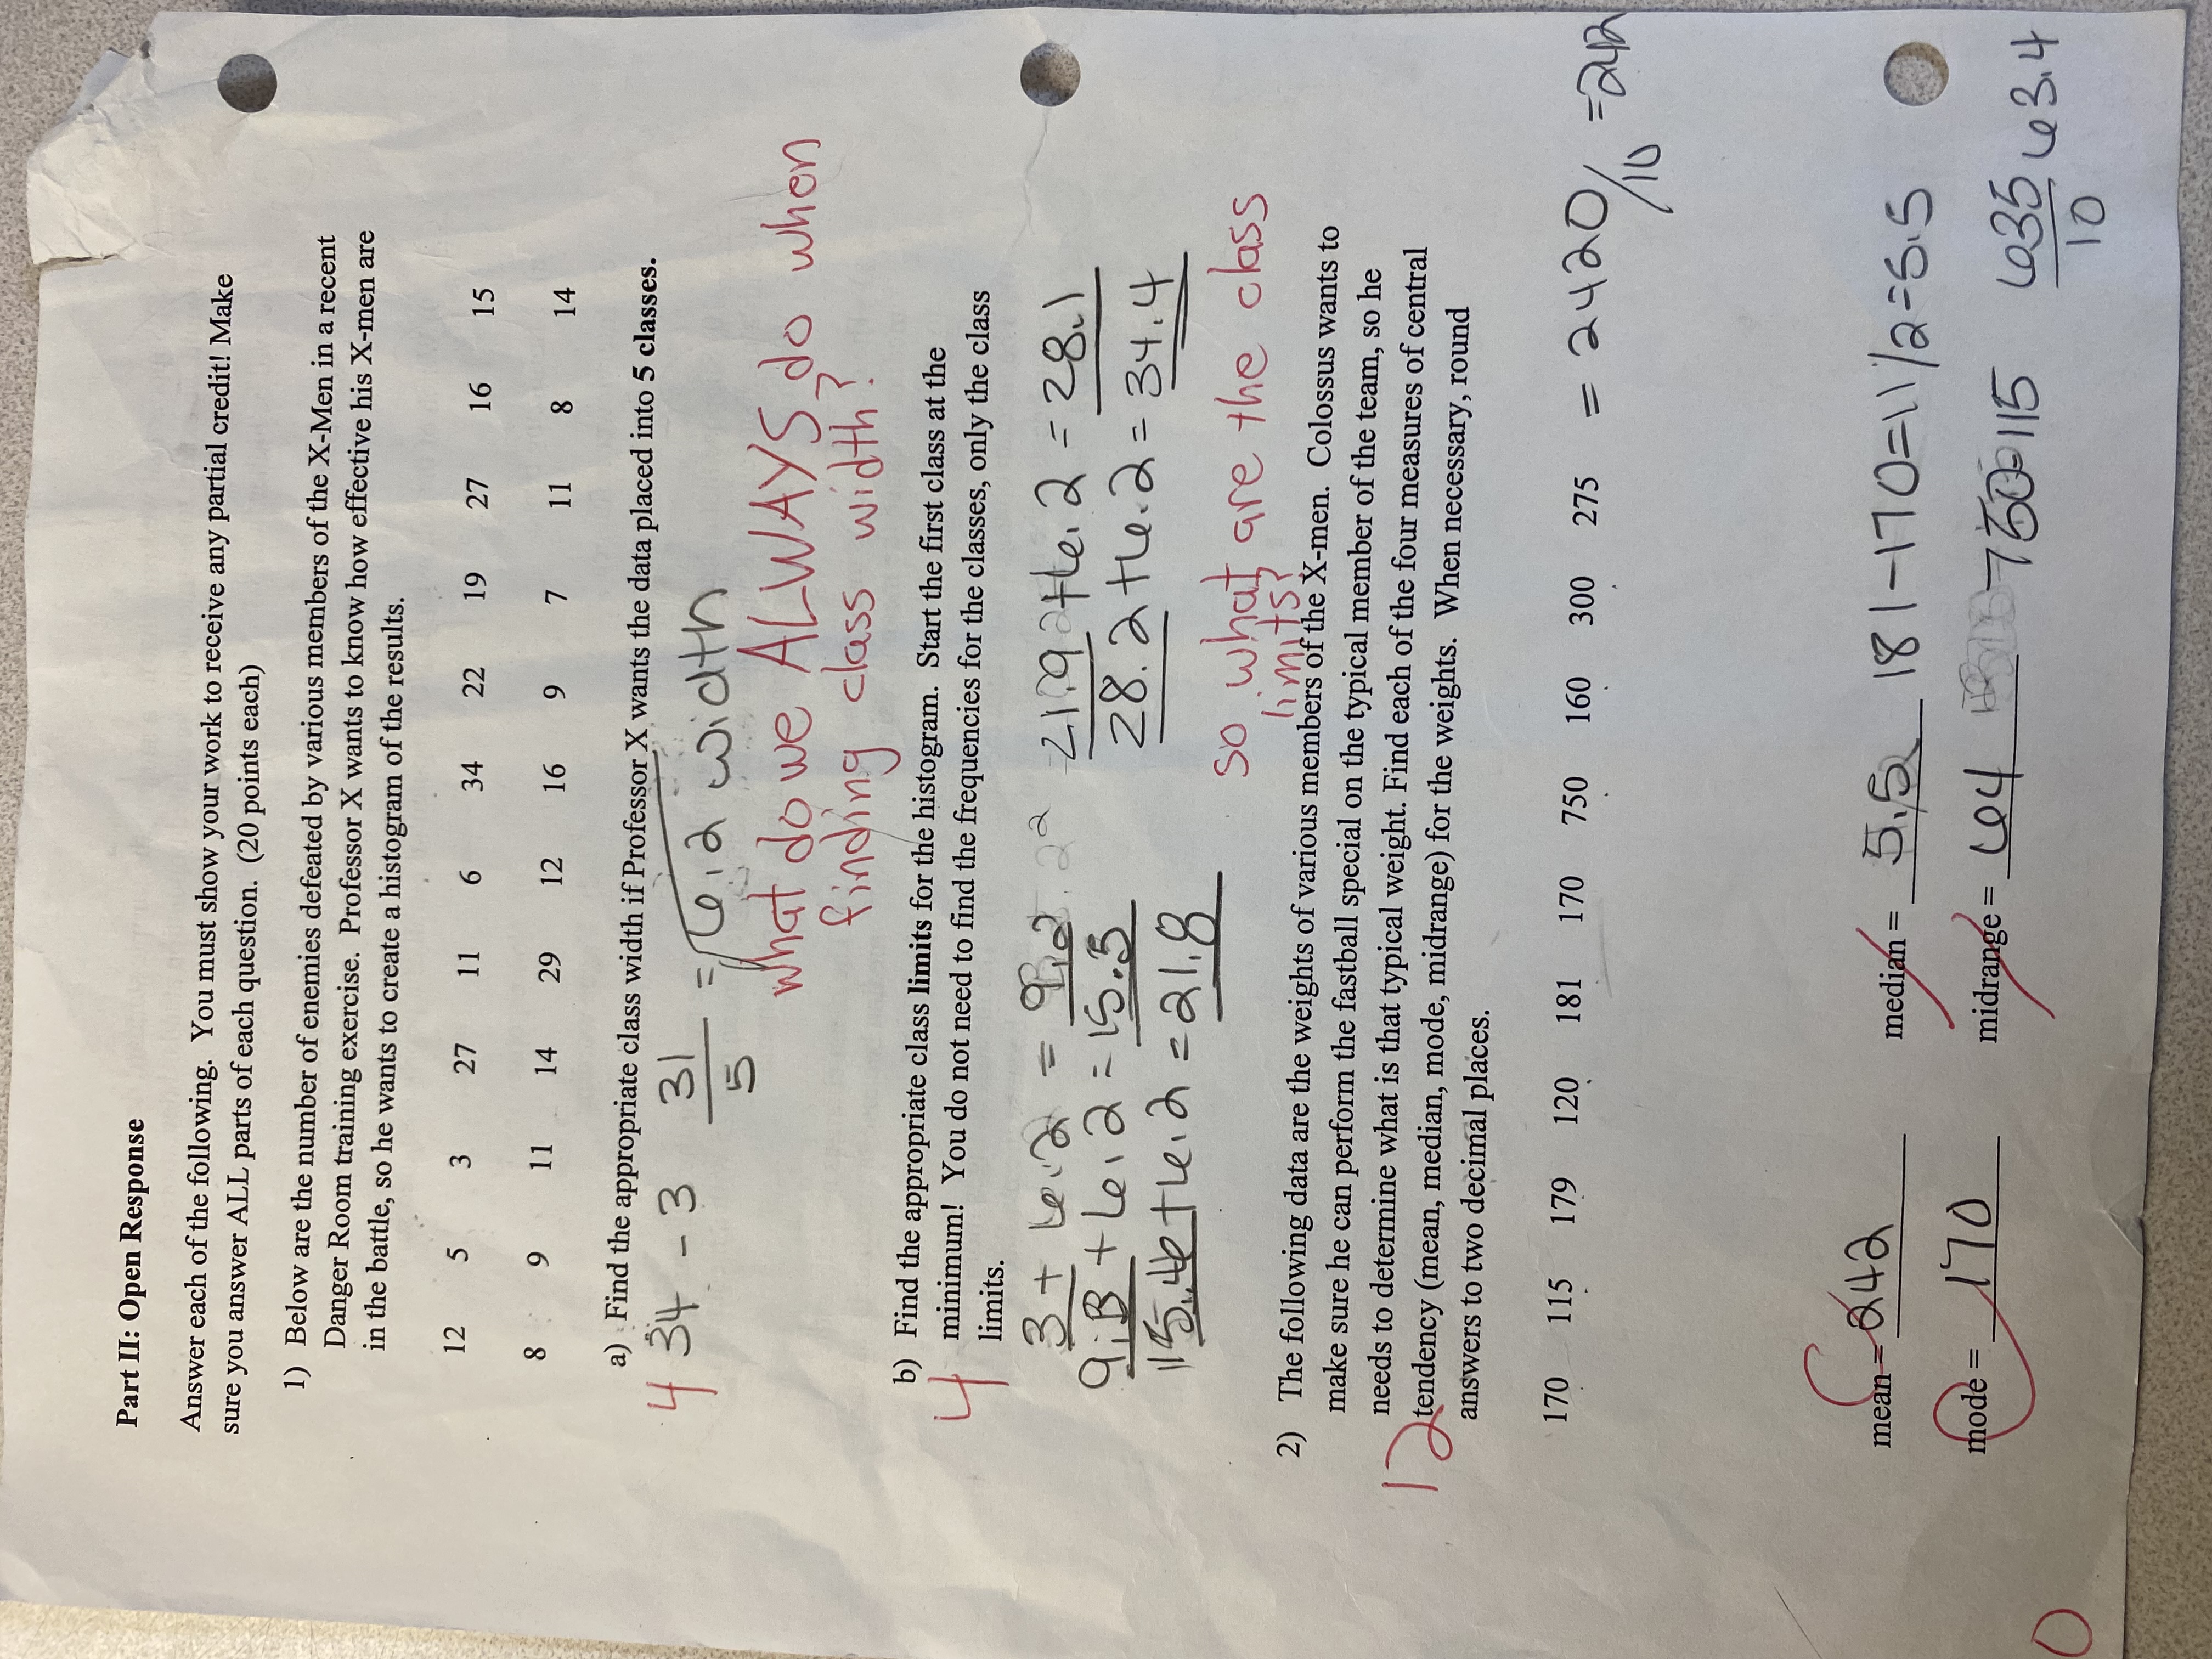 Part II: Open Response
Answer each of the following. You must show your work to receive any partial credit! Make
sure you answer ALL parts of each question. (20 points each)
1) Below are the number of enemies defeated by various members of the X-Men in a recent
Danger Room training exercise. Professor X wants to know how effective his X-men are
in the battle, so he wants to create a histogram of the results.
12 5 3 27 11 6 34 22 19 27 16 15
8 9 11 14 29 12 16 9 7 11 8 14
a) Find the appropriate class width if Professor X wants the data placed into 5 classes.
4 34 - 3 31/5 = 6.2 width
what do we ALWAYS do when
finding class width?
b) Find the appropriate class limits for the histogram. Start the first class at the
4 minimum! You do not need to find the frequencies for the classes, only the class
limits.
3 + 6.2 = 9.2
9.3 + 6.2 = 15.5
15.6 + 6.2 = 21.8
21.9 + 6.2 = 28.1
28.2 + 6.2 = 34.4
so what are the class
limits?
2) The following data are the weights of various members of the X-men. Colossus wants to
make sure he can perform the fastball special on the typical member of the team, so he
needs to determine what is that typical weight. Find each of the four measures of central
12 tendency (mean, median, mode, midrange) for the weights. When necessary, round
answers to two decimal places.
170 115 179 120 181 170 750 160 300 275 = 2420/10 = 242
mean = 242 median = 5.5 181-170=11/2=5.5
mode = 170 midrange = 64 750-115 635/10 63.4
0